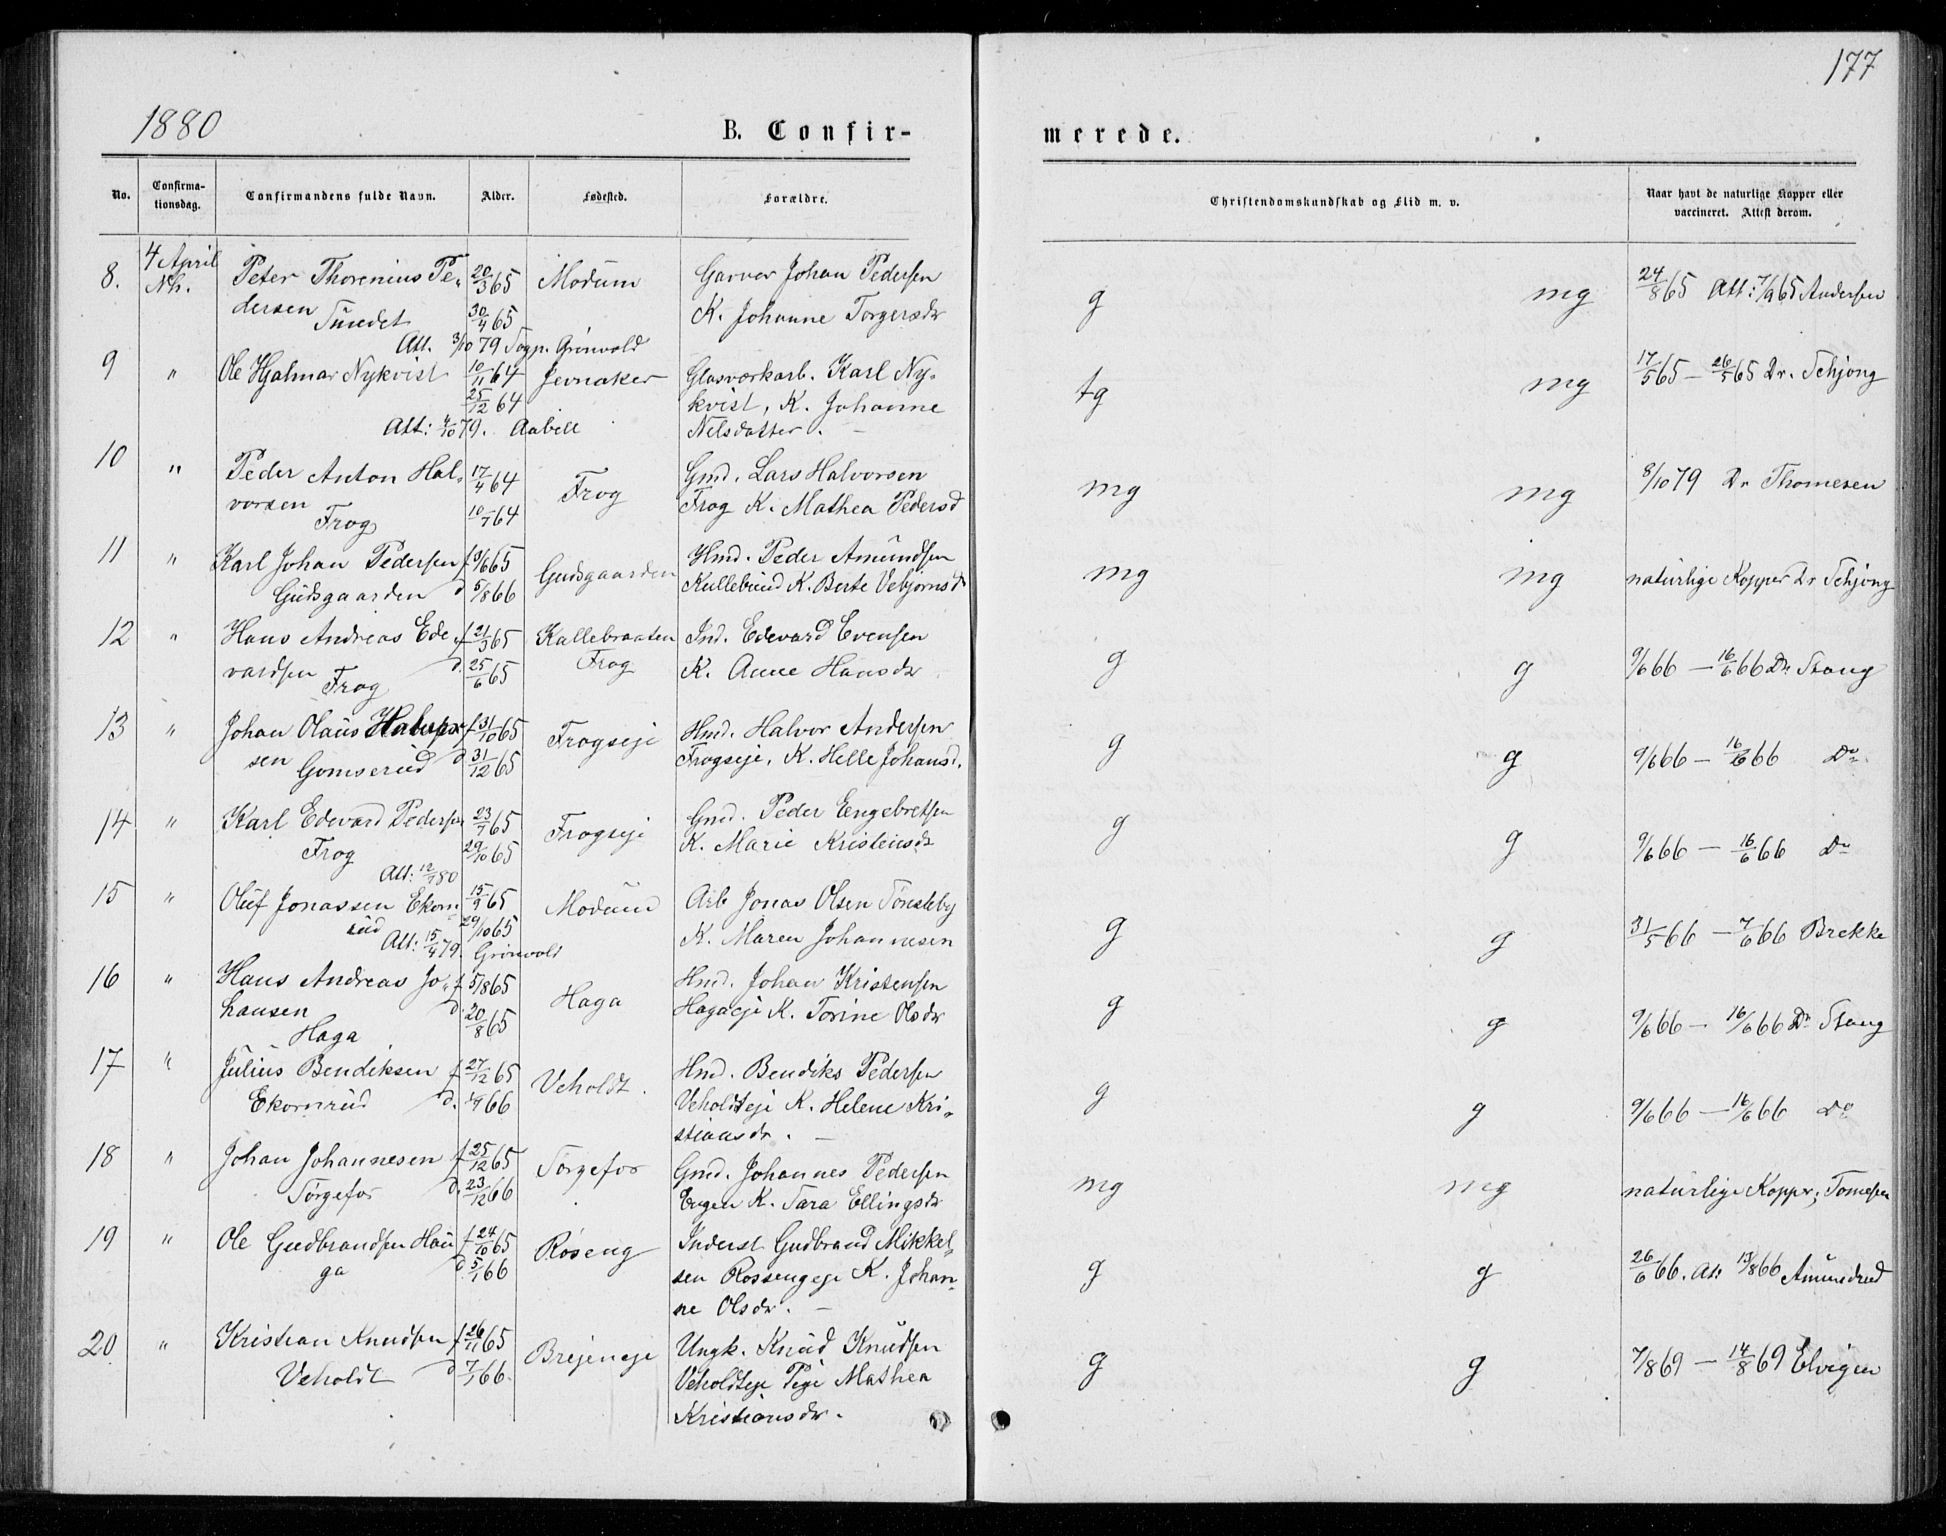 177
1880
B. Confir-
merede.
No.
Confirma-
tionsdag.
Confirmandens fulde Navn.
Alder.
Fødested.
Forældre.
Christendomskundskab og Flid m. v.
Naar havt de naturlige Kopper eller
vaccineret. Attest derom.
8. 4 April Peter Thorenius Pe- 20/3 65 Modum Garver Johan Pedersen g mg 24/8 65 Att: 7/9 65 Andersen
Nh. dersen 30/4 65 K. Johanne Torgersdr
Att. 3/10 79 Sogp. Grönvold
9 " Ole Hjalmar Nykvist 10/11 64 Jevnaker Glasværkarb. Karl Ny- tg mg 17/5 65 – 26/5 65 Dr. Schjöng
25/12 64 kvist, K. Johanne
Att: 4/10 79. Aabell Nelsdatter. –
10 " Peder Anton Hal- 17/4 64 Frog Gmd. Lars Halvorsen mg mg 8/10 79 Dr Thomesen
vorsen 10/7 64 Frog K. Mathea Pedersd
Frog
11 " Karl Johan Pedersen f Gudsgaarden Hmd. Peder Amundsen mg mg naturlige Kopper Dr Schjöng
Gudsgaarden d 5/8 66 K. Berte Vebjörnsd
12 " Hans Andreas Ede- f 21/3 65 Kallebraaten Ind. Edevard Evensen g g 9/6 66 – 16/6 66 Dr Stang
vardsen d. 25/6 65 Frog K. Anne Hansdr
Frog
13 " Johan Olaus Halvor- f 31/10 65 Frogseje Hmd. Halvor Andersen g g 9/6 66 – 16/6 66 Do
sen Gomserud d 31/12 65 Frogseje, K. Helle Johansd.
14 " Karl Edevard Pedersen 23/7 65 Frogseje Gmd. Peder Engebretsen g g 9/6 66 – 16/6 66 Do
Frog 29/10 65 K. Marie Kristensdr
Att: 80
15 " Oluf Jonassen Ekorn- 15/9 65 Modum Arb Jonas Olsen Tönsleby g g 31/5 66 – 7/6 66 Brekke
rud 29/10 65 K. Maren Johannesen
Att: 15/4 79. Grönvold
16 " Hans Andreas Jo- f 5/8 65 Haga Hmd. Johan Kristensen g g 9/6 66 – 16/6 66 Dr Stang
hansen d 20/8 65 Hagaeje K. Torine Olsdr
Haga
17 " Julius Bendiksen f 27/12 65 Veholdt. Hmd. Bendiks Pedersen g g 9/6 66 – 16/6 66 Do
Ekornrud d. 66 Veholdteje K. Helene Kri-
stiansdr. –
18 " Johan Johannesen f 25/12 65 Törgefor Gmd. Johannes Pedersen mg mg naturlige Kopper; Tomesen
Törgefor d. 23/12 66 Engen K. Sara Ellingsdr
19 " Ole Gudbrandsen Hau- f 24/10 65 Röseng Inderst Gudbrand Mikkel- g g 26/6 66. Att 66 Amundrud
ga d. 5/1 66 sen Rossengeje K. Johan-
ne Olsdr. –
20 " Kristian Knudsen f 26/11 65 Brejeneje Ungk. Knud Knudsen g g 7/8 69 – 14/8 69 Elvigen
Veholdt d 7/1 66. Veholdteje Pige Mathea
Kristiansdr.